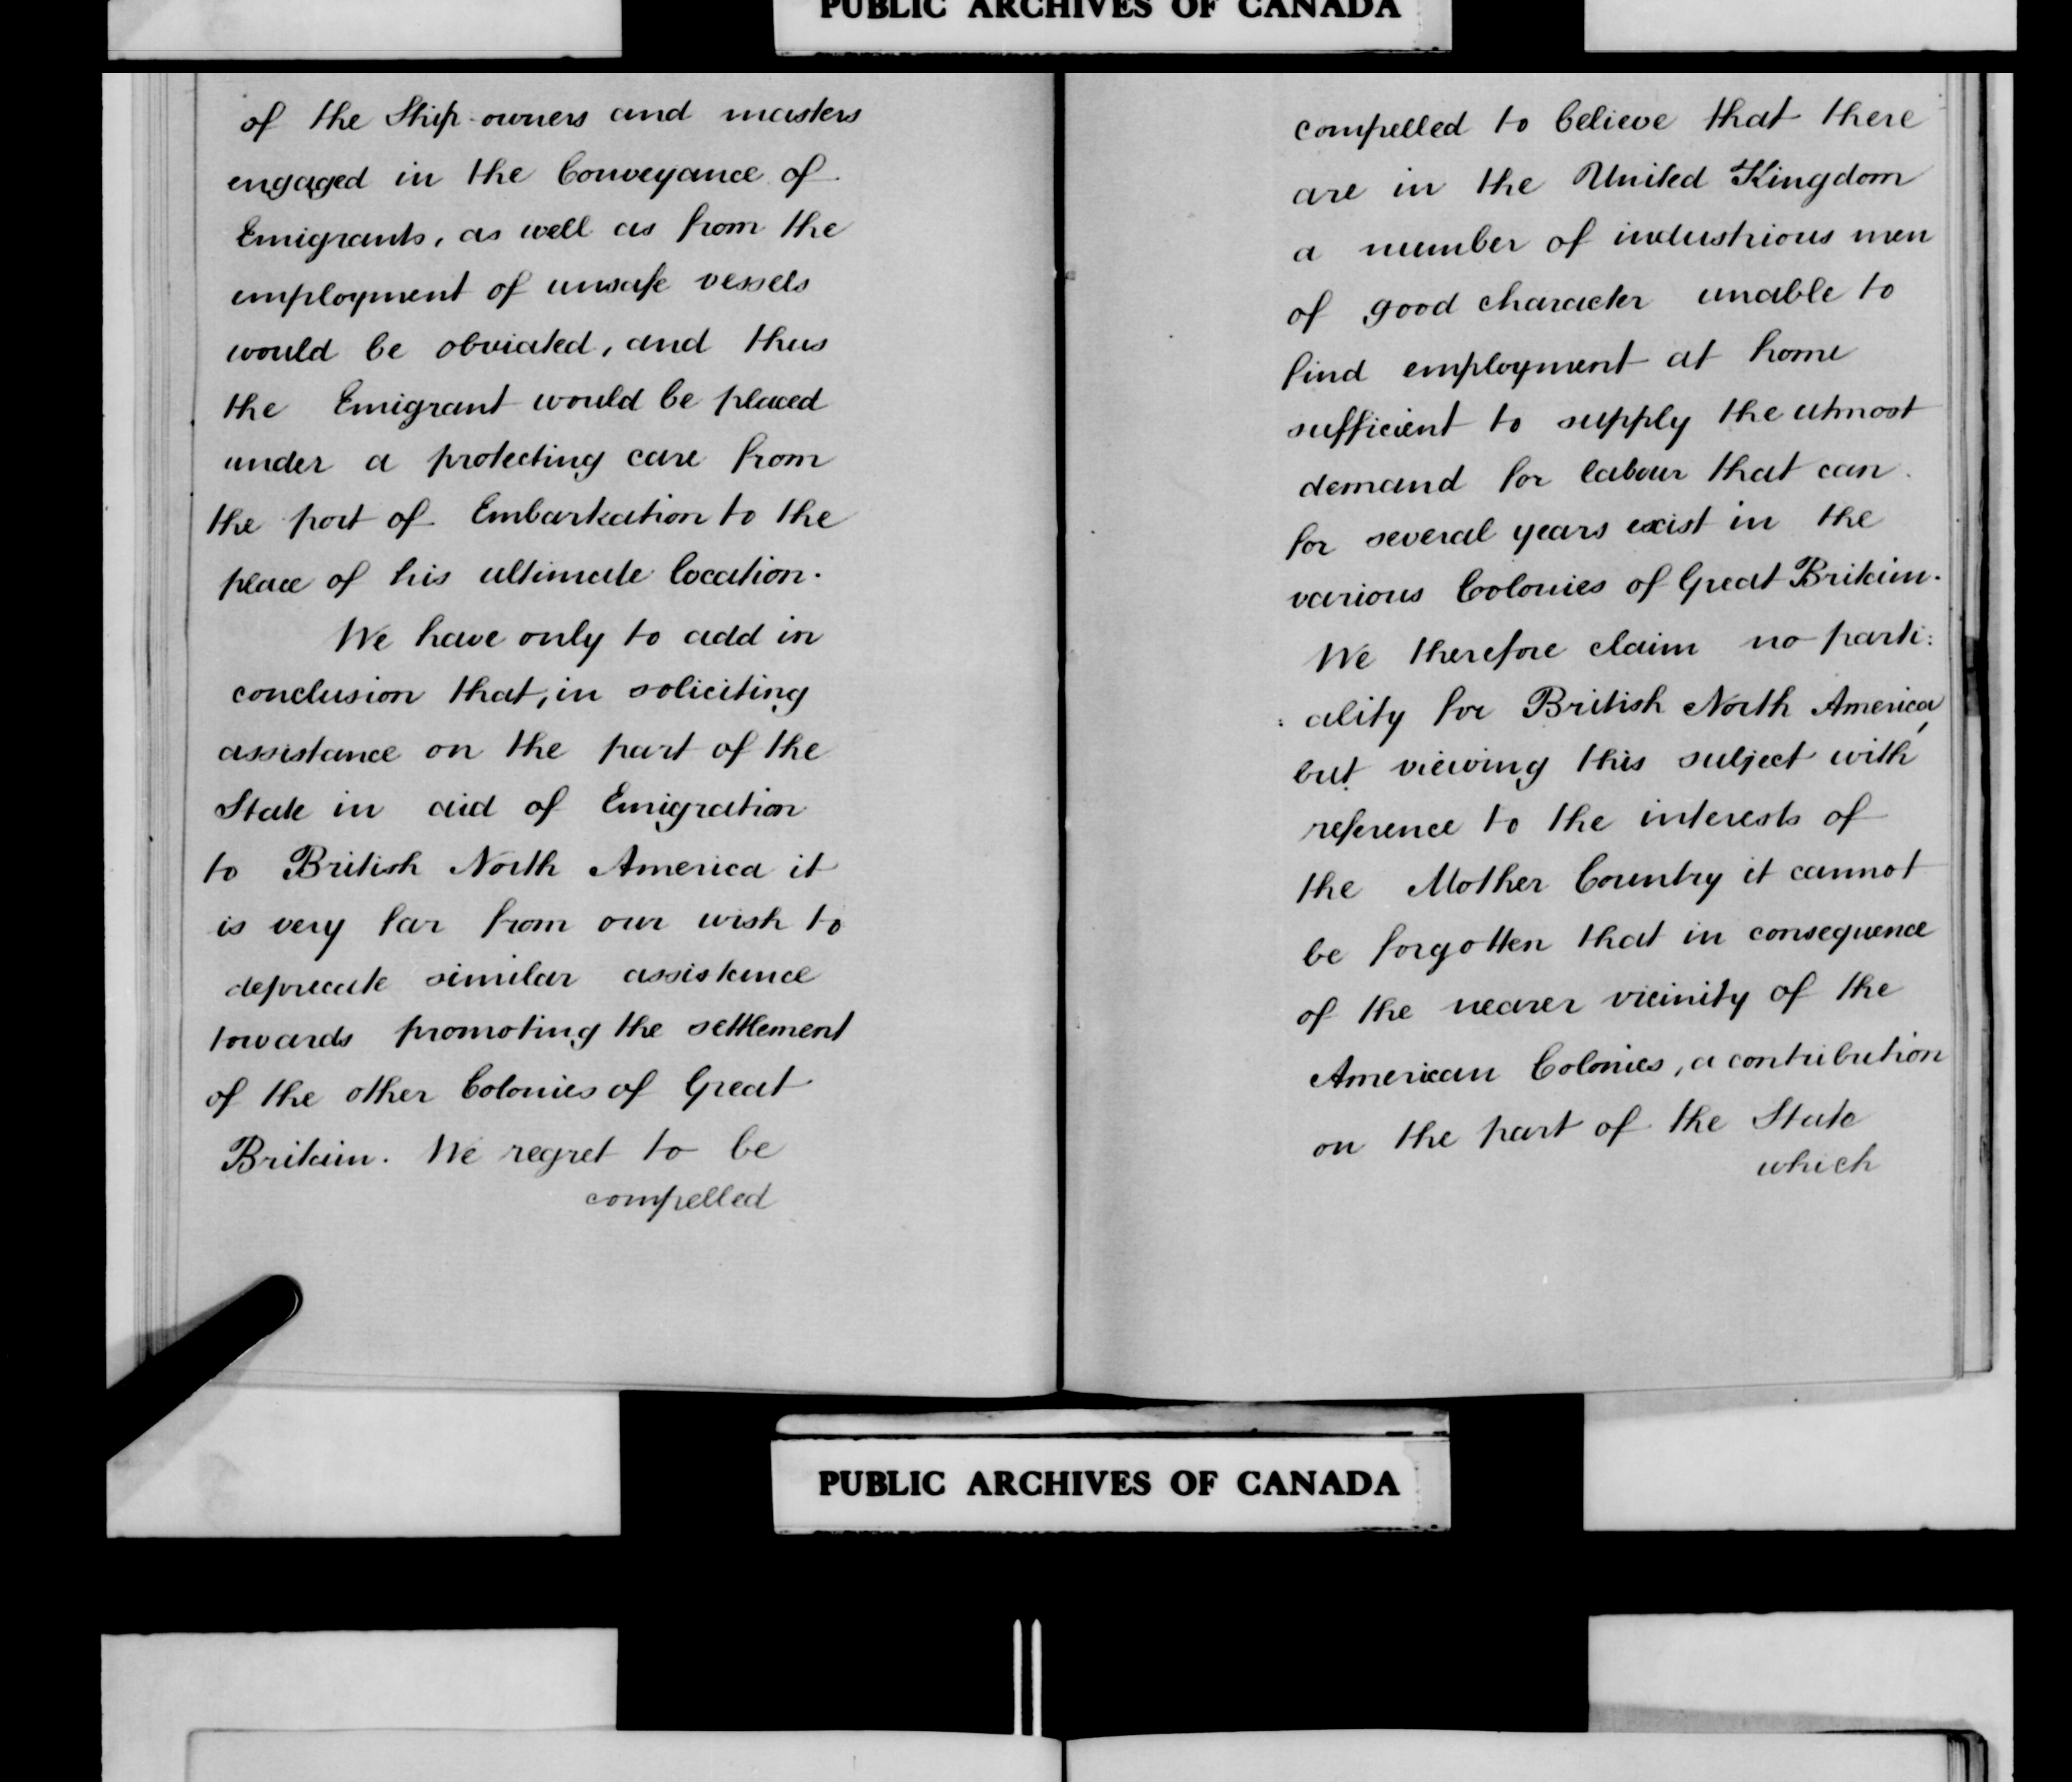 PUBLIC ARCHIVES OF CANADA
of the Ship-owners and masters
engaged in the Conveyance of
Emigrants, as well as from the
employment of unsafe vessels
would be obviated, and thus
the Emigrant would be placed
under a protecting care from
the port of Embarkation to the
place of his ultimate location.
We have only to add in
conclusion that, in soliciting
assistance on the part of the
State in aid of Emigration
to British North America it
is very far from our wish to
deprecate similar assistance
towards promoting the settlement
of the other Colonies of Great
Britain. We regret to be
compelled
compelled to believe that there
are in the United Kingdom
a number of industrious men
of good character unable to
find employment at home
sufficient to supply the utmost
demand for labour that can
for several years exist in the
various Colonies of Great Britain.
We therefore claim no parti:
: ality for British North America,
but viewing this subject with
reference to the interests of
the Mother Country it cannot
be forgotten that in consequence
of the nearer vicinity of the
American Colonies, a contribution
on the part of the State
which
PUBLIC ARCHIVES OF CANADA